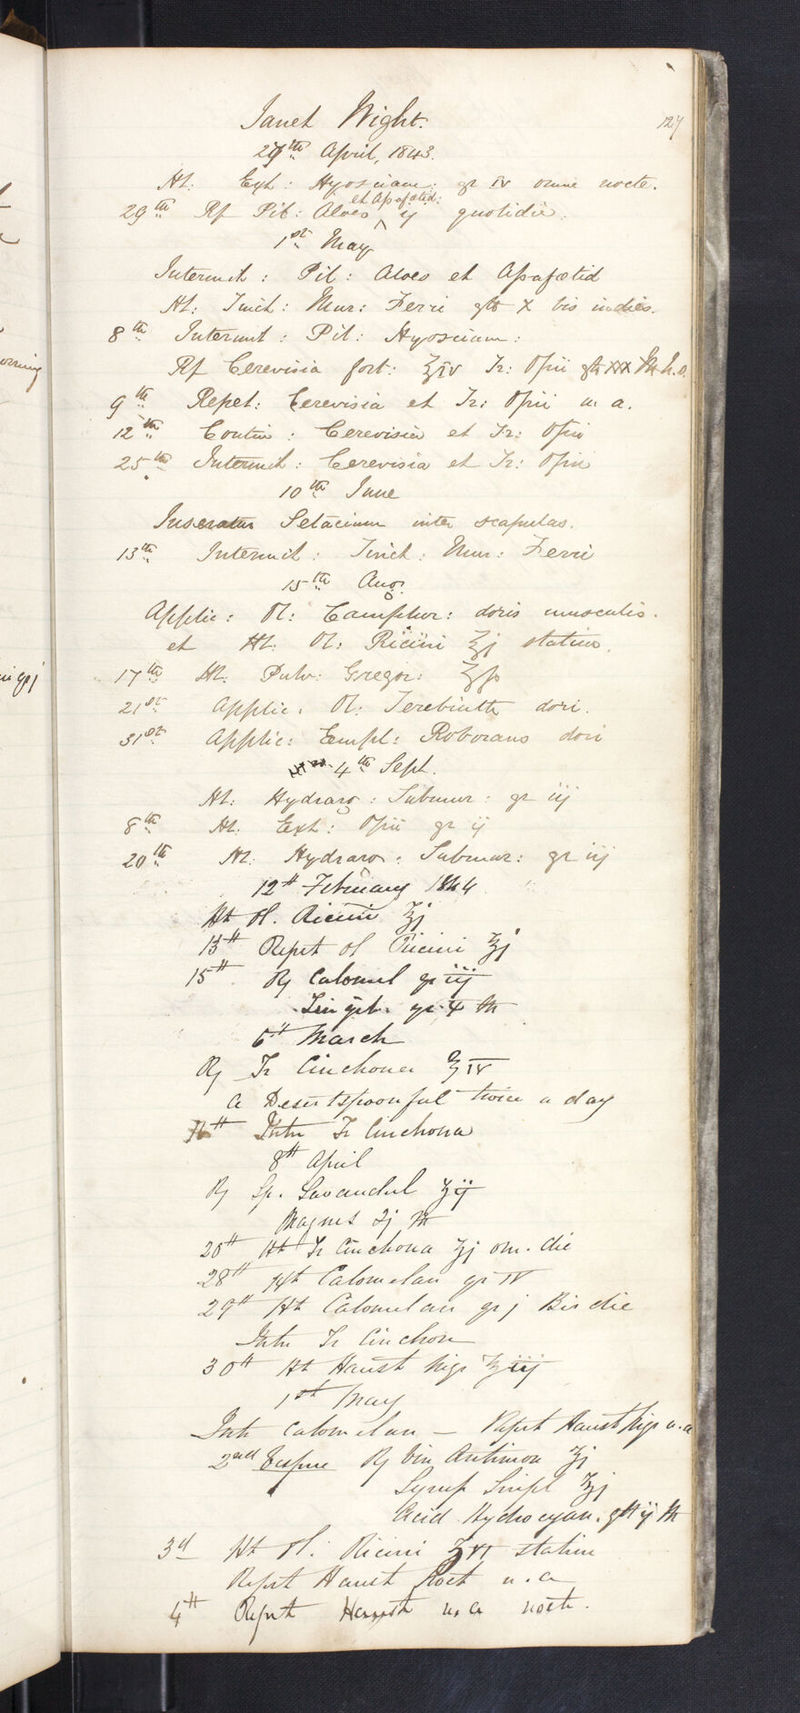 127
Janet Wight.
27th April, 1843.
Ht: Ext: Hyosciam: gr iv omne nocte.
et Assafœtid:
29th Rx Pil: Aloes ^ ij quotidie.
1st May
Intermit: Pil: Aloes et Assafœtid
Ht: Tinct: Mur: Ferri gtt x bis indies.
8th Intermit: Pil: Hyosciam:
Rx Cerevisia fort: ℥iv Tr: Opii gtt xxx M h.s.
9th Repet: Cerevisia et Tr: Opii u. a.
12th Contin: Cerevisia et Tr: Opii
25th Intermit: Cerevisia et Tr: Opii
10th June
Inseratur Setaceum inter scapulas.
13th Intermit: Tinct: Mur: Ferri
15th Aug:
Applic: Ol: Camphor: doris musculis.
et Ht: Ol: Ricini ℥j statim.
17th Ht: Pulv: Gregor: ʒss
21st Applic: Ol: Terebinth dori.
31st Applic: Empl: Roborans dori
4th Sept.
Ht: Hydrarg: Submur: gr iij
8th Ht: Ext: Opii gr ij
20th Ht: Hydrarg: Submur: gr iij
12th February 1844
Ht Ol. Ricini ℥j
13th Repet ol Ricini ℥j
15th Rx Calomel gr iij
gr x M
6th March
Rx Tr Cinchona ℥iv
a Desertspoonful twice a day
Intr Tr Cinchona
8th April
Rx Sp. Lavandul ʒij
Magnes ʒj M
20th Ht Tr Cinchona ʒj om. die
28th Ht Calomelan gr iv
29th Ht Calomelan gr j Bis die
Intr Tr Cinchon
30th Ht Haust Nigr ℥iij
1st May
Intr Calomelan — Repet Haust Nigr u.a
2nd Vespere Rx Vin Antimon ʒj
Syrup Simpl ʒj
Acid Hydrocyan. gtt ij M
3d Ht Ol. Ricini ʒvi statim
Repet Haust Noct u.a
4th Repet Haust u.a noct.